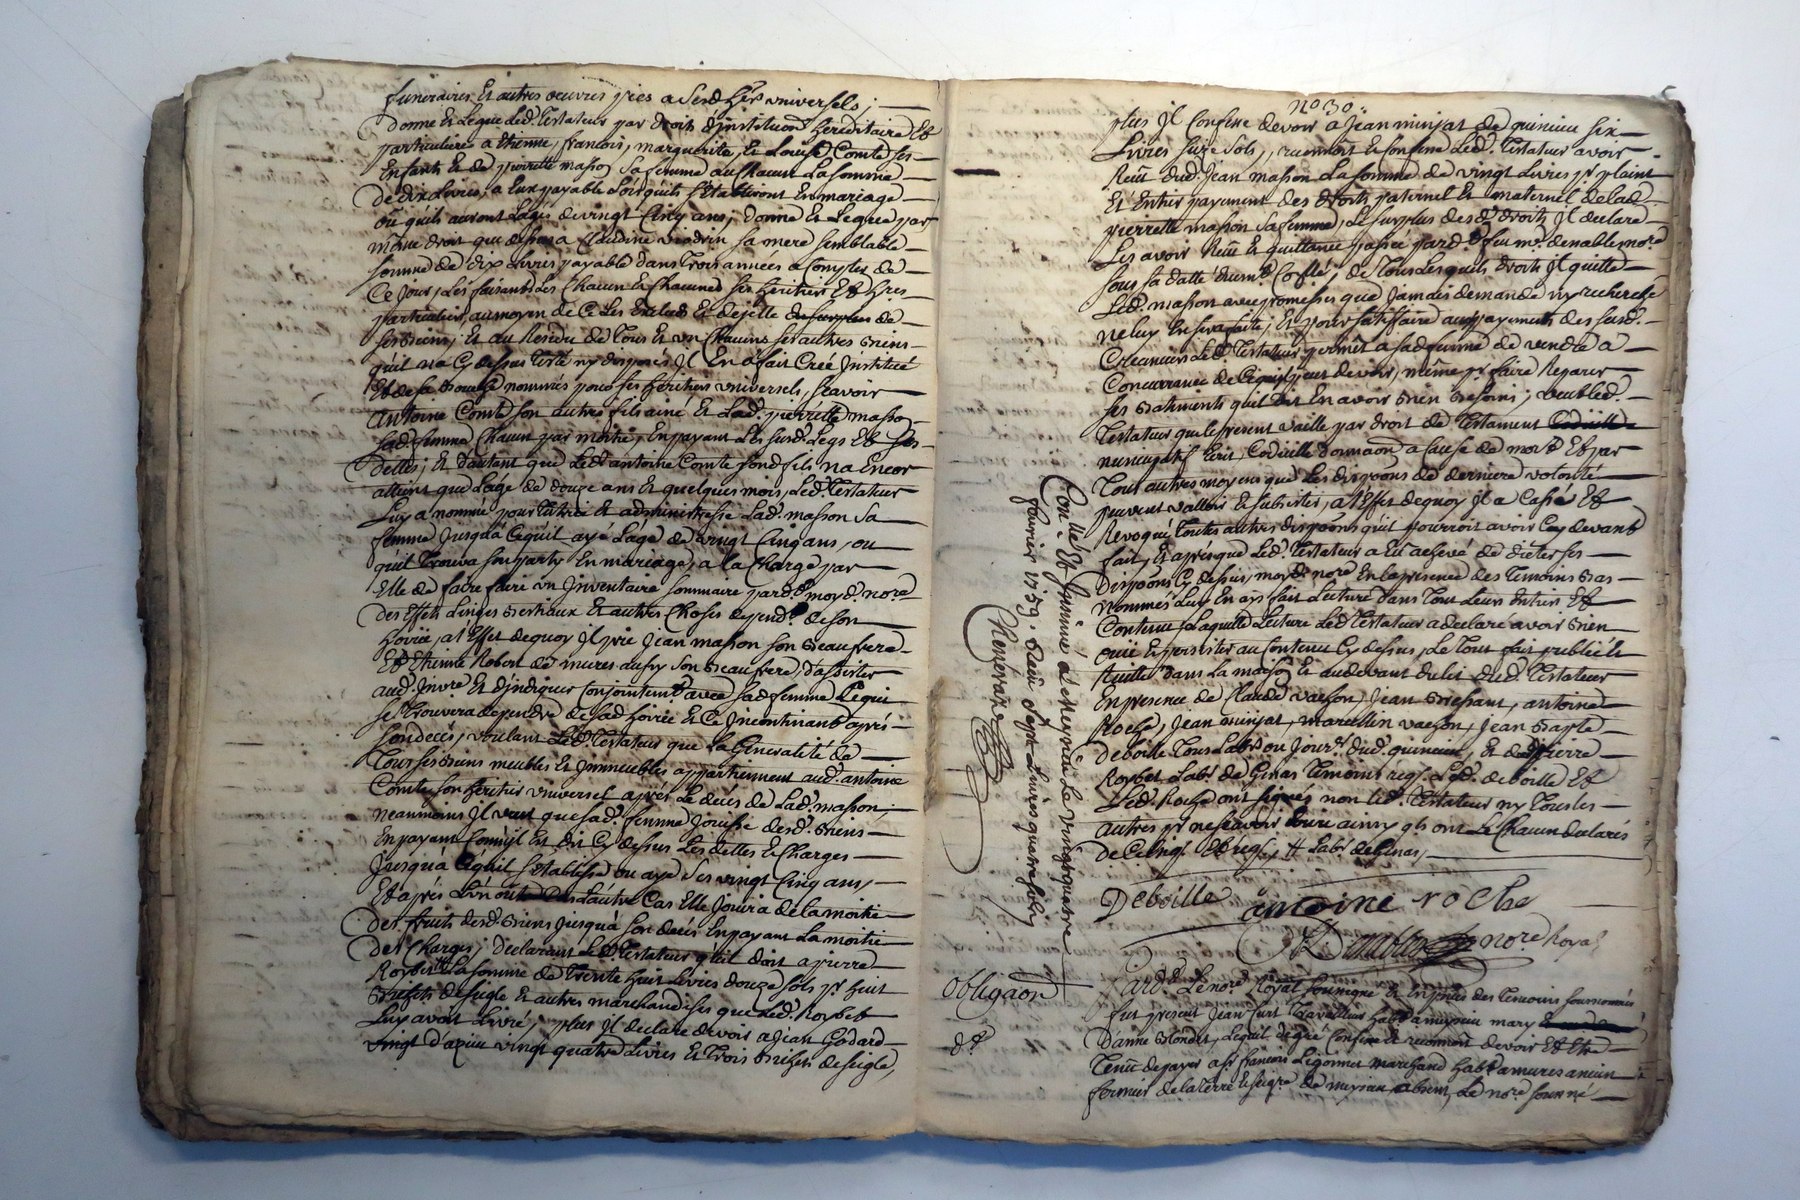 funeraires Et autres oeuvres pies a Sesd. hers universels;
donne Et Legue Led. Testateur par droit d'institution hereditaire Et
particuliere a Etienne, francois, marguerite, Et Louise Comte ses
Enfants Et de pierrette masson Sa femme au Chacun La somme
De dix Livres, a Eux payable Lorsquils s'Etabliront En mariage
ou quils auront L'age de vingt Cinq ans; Donne Et Legue par
même droit que dessus a Claudine viadrin sa mere semblable
somme de dix Livres payable dans Trois années a Compter de
Ce Jour, Les faisants Les Chacun Et Chacune ses heritiers Et hers
particuliers, au moyen de Ce Les Exclud Et dejette de
ses Biens, Et au Residu de Tous Et un Chacuns ses autres Biens
qu'il n'a Cy dessus Testé ny disposés Il En a fait Créé Institué
Et de sa Bouche nommés pour ses heritiers universels, sçavoir
antoine Comte son autre fils ainé Et Lad. pierrette masson
sad. femme Chacun par moitié, En payant Les susd. Legs Et ses
dettes; Et d'autant que Led. antoine Comte sond. fils n'a Encor
atteint que L'age de douze ans Et quelques mois, Led. Testateur
Luy a nommé pour Tutrice Et administresse Lad. masson Sa
femme Jusqu'a Cequil ayé L'age de vingt Cinq ans, ou
qu'il Trouva son party En mariage, a la Charge par
Elle de faire faire un Inventaire sommaire pard. moyd. nore
Des Effets Linges Bestiaux Et autres Choses depend. de son
hoirie, a L'Effet dequoy il prie Jean masson son Beaufrere
Et Etienne Robert de mures aussy son Beaufrere, d'assister
aud. Invre Et d'indiquer Conjointemt avec Sad. femme Cequi
se Trouvera dependre de Sad. hoirie Et Ce Incontinant aprés
son decés, voulant Led. Testateur que La Generalité de
Tous ses Biens meubles Et Immeubles appartiennent aud. antoine
Comte son heritier universel aprés Le decés de Lad. masson,
neanmoins Il veut que sad. femme Jouisse desd. Biens
En payant Comm'il Est Dit Cy dessus Les dettes Et Charges
Jusqu'a Cequil s'Etablisse ou aye Ses vingt Cinq ans,
Et aprés L'un ou L'autre Cas Elle Jouira de La moitié
Des fruits desd. Biens Jusqu'a son decés En payant La moitié
Des Charges; Declarant Led. Testateur quil doit a pierre
Roybet La somme de Trente huit Livres douze sols pr huit
Bichets de seigle Et autres marchandises que Led. Roybet
Luy avoit Livré; plus Il declare devoir a Jean Godard
vingt quatre Livres Et Trois Bichets de seigle,
no 30.
plus Il Confesse devoir a Jean minjat de quincieu six
Livres seize sols, reconnoit Et Confesse Led. Testateur avoir
Reçu dud. Jean masson La somme de vingt Livres pr plaint
Et Entier payement des droits paternel Et maternel de Lad.
pierrette masson Sa femme, Le surplus desd. droits Il declare
Les avoir Reçu Et quittancé pard. feu me. denable nore
sous sa datte deuemt Coñllé, de Tous Lesquels droits Il quitte
Led. masson avec promesses que Jamais demande ny recherche
ne Luy En sera faite; Et pour satisfaire aux payements des susd.
Creanciers Led. Testateur permêt a Sad. femme de vendre a
Concurrance de Cequil peut devoir, même pr faire Reparer
ses Batiments qu'il dit En avoir Bien Besoin; veut Led.
Testateur que le present vaille par droit de Testament
nuncupatif Ecrit, Codicille Donnaon a Cause de mort Et par
Tous autres moyens que Les disposons de derniere volonté
peuvent valloir Et subsister, a L'Effet dequoy Il a Cassé Et
Revoqué Toutes autres disposons qu'il pourroit avoir Cy devant
fait, Et aprés que Led. Testateur a Eu achevé de dicter ses
Disposons Cy dessus, moyd. nore En La presence des Témoins Bas
nommés Luy En ay fait Lecture dans Tout Leurs Entier Et
Contenu, a Laquelle Lecture Led. Testateur a declaré avoir Bien
ouie Et persister au Contenu Cy dessus, Le Tout fait publié Et
Recitté dans La maison Et audevant du Lit dud. Testateur
En presence de Claude vachon, Jean Bressant, antoine
Roche, Jean minjat, marcellin vachon, Jean Bapte
Deboille Tous Labrs ou Journ. dud. quincieu, Et de pierre
Roybet Labr de Genas Temoins reqs. Led. deboille Et
Led. Roche ont signés non Led. Testateur ny Tous Les
autres pr ne sçavoir Ecrire ainsy qls ont Le Chacun declarés
de Ce Enqs. Et reqs. Labr de Genas,
Deboille antoine roche
Denable nore Royal
Con.llé Et Insinué a Meyrieu Le vingt quatre
fevrier 1759. Reçu Sept Livres quatre sols
Obligaõn
Pard. Le nore Royal soussigné Et En pñce des Temoins sournommés
fut present Jean Turt Travailleur habt a meyrieu mary
D'anne Blondet, Lequel de gré Confesse Et reconnoit devoir Et Etre
Tenu de payer a sr. francois Ligonnet marchand habt a mures ancien
fermier de La Terre Et seigrie de meyrieu absent, Le nore soussigné